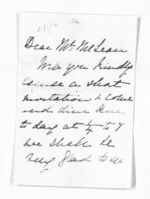 Dear Mr McLean
Will you kindly
excuse a short
invitation & come
and dine here
to day at 1/4 to 7
we shall be
very glad to